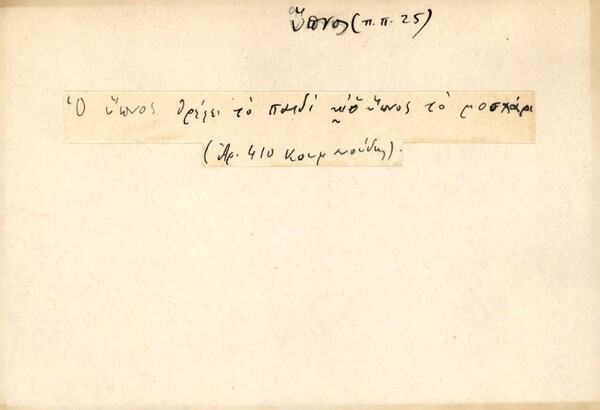 Ὕπνος (π.π. 25)
Ὁ ὕπνος θρέφει τὸ παιδί κι ὁ ὕπνος τὸ μοσχάρι
(Ἀρ. 410 Κουμανούδης).